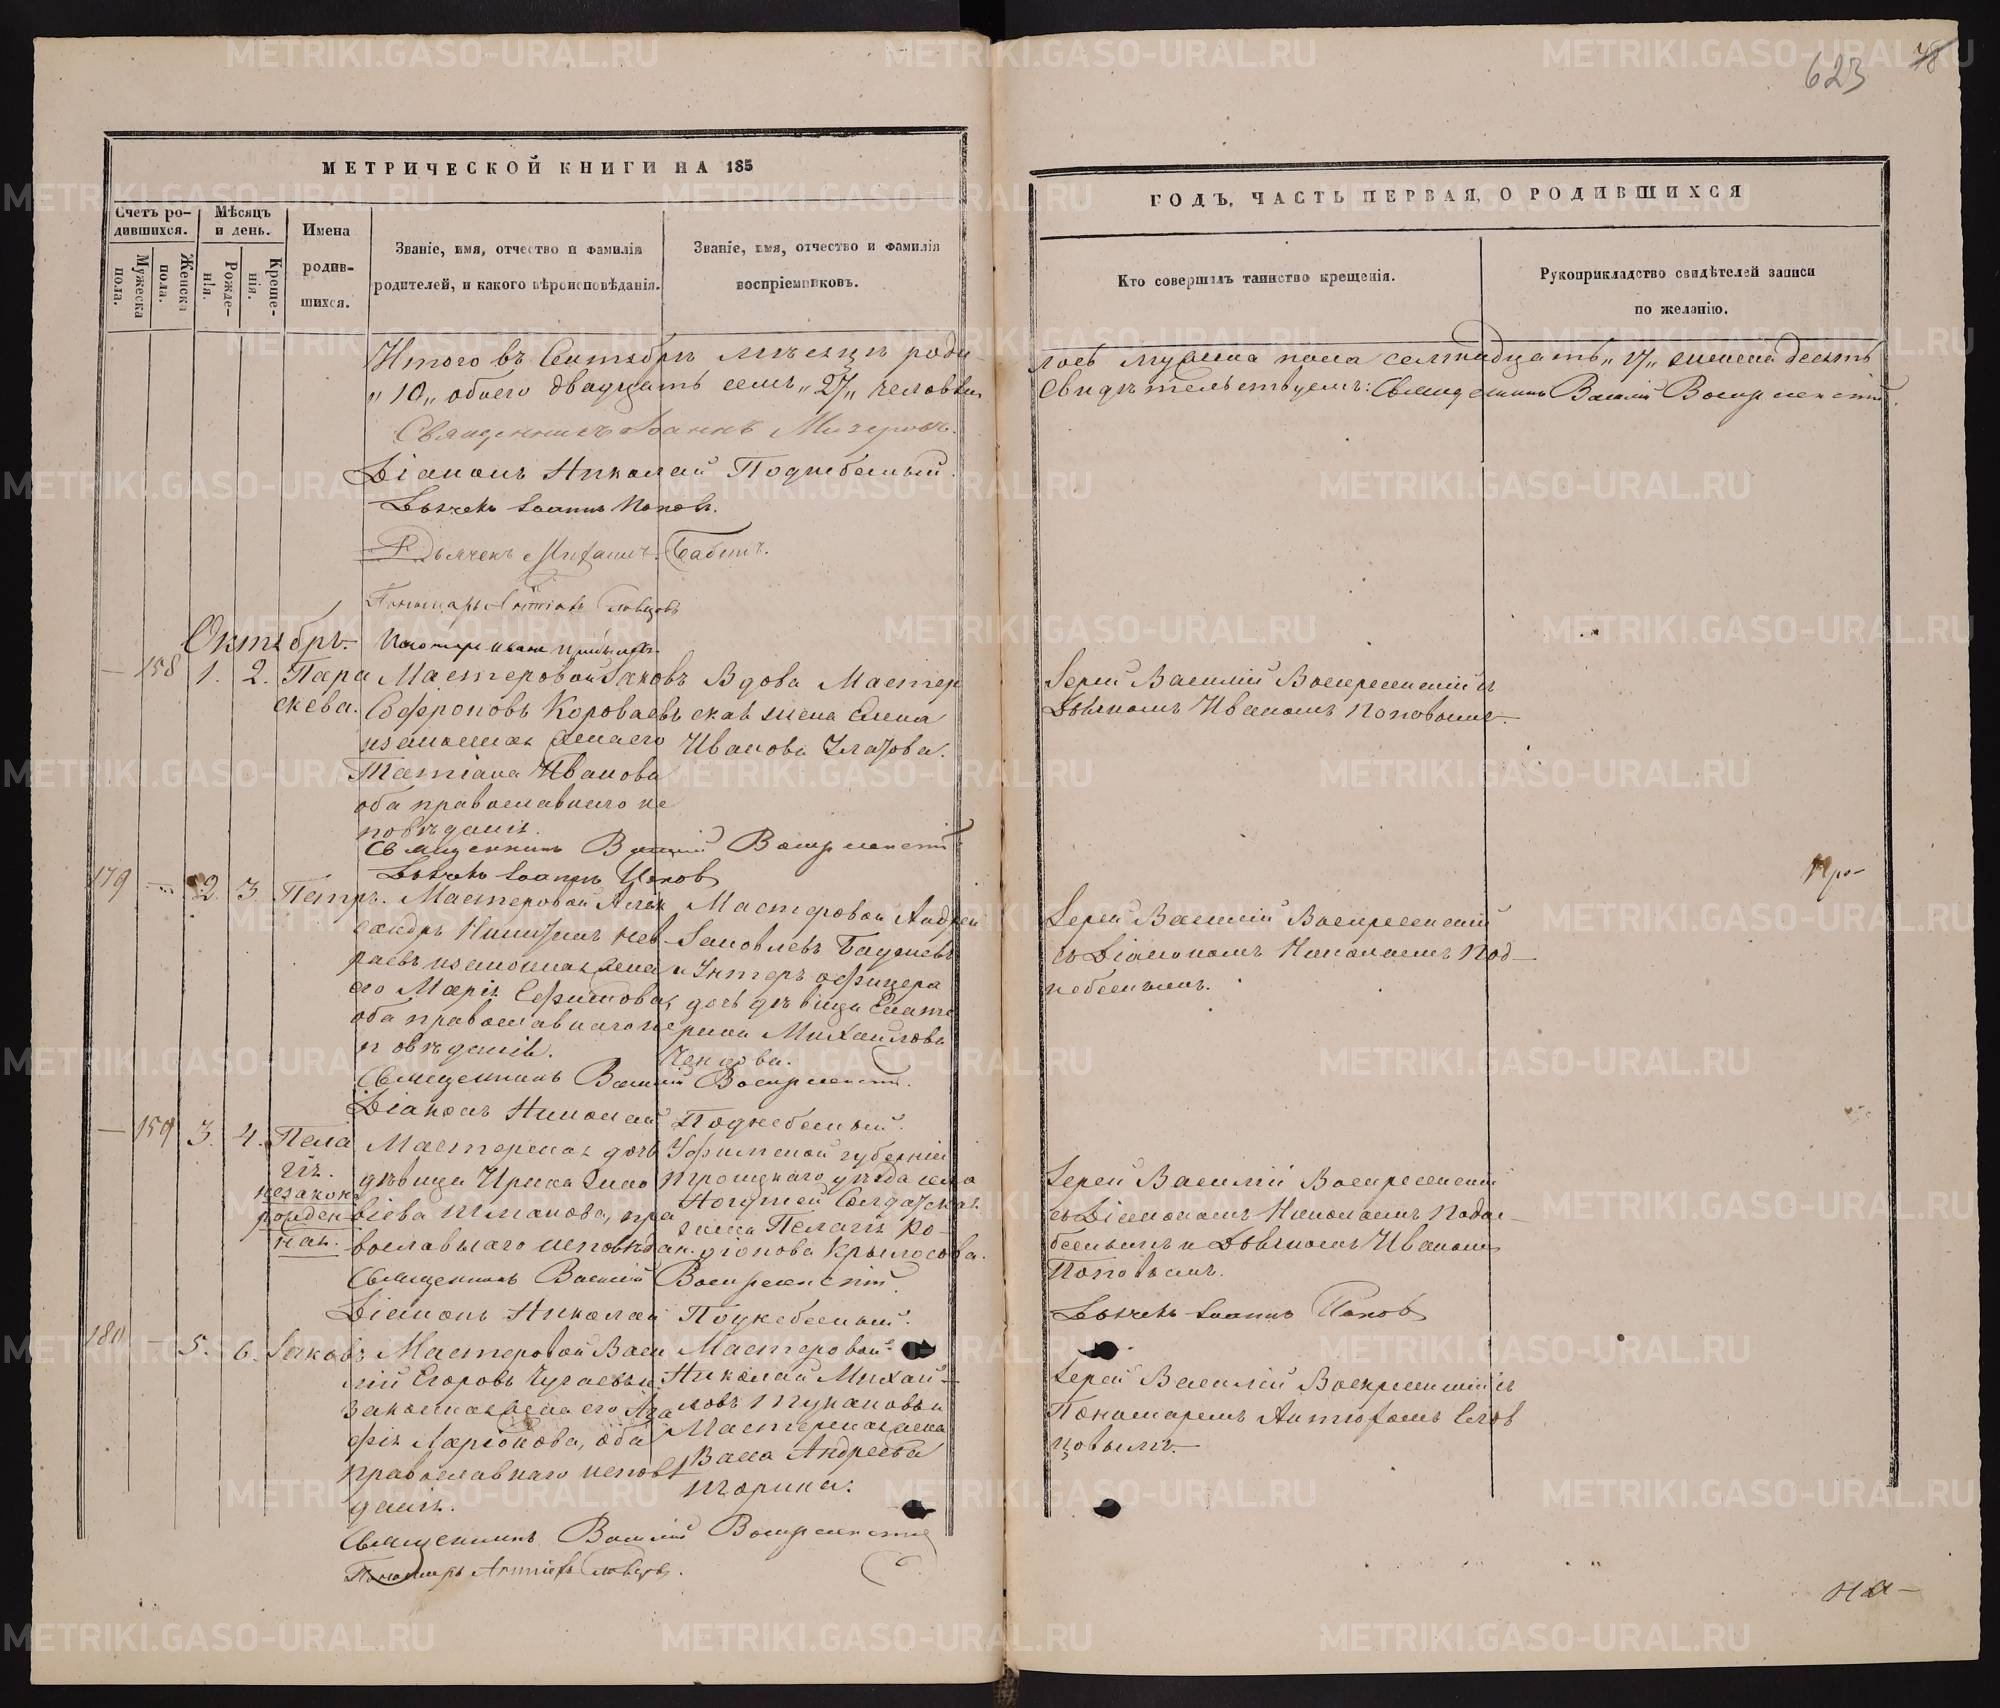 623
78
МЕТРИЧЕСКОЙ КНИГИ НА 185
ГОДЪ, ЧАСТЬ ПЕРВАЯ, О РОДИВШИХСЯ
Счетъ ро-
дившихся.
Мужеска
пола.
Женска
пола.
Мѣсяцъ
и день.
Рожде-
нія.
Креше-
нія.
Имена
родив-
шихся.
Званіе, имя, отчество и фамилія
родителей, и какого вѣроисповѣданія.
Званіе, имя, отчество и фамилія
воспріемниковъ.
Кто совершилъ таинство крещенія.
Рукоприкладство свидѣтелей записи
по желанію.
Итого въ Сентябрѣ мѣсяцѣ роди-
лось мужеска пола семнадцать „17„ женска десять
„10„ обоего двадцать семь „27„ человѣкъ
Свидѣтельствуемъ: Священникъ Василій Воскресенскій.
Священникъ Іоаннъ
Діаконъ Николай Поднебесный.
Дьячекъ Іоаннъ Поповъ.
Дьячекъ Михаилъ Бабинъ.
Пономарь Антіохъ Словцовъ
Октябрь.
— 158 1. 2. Пара
скева.
Мастеровой Іаковъ
Софроновъ Короваевъ
и законная жена его
Татіана Иванова
оба православнаго ис
повѣданія.
Вдова Мастер
ская жена Елена
Иванова Глазова.
Іерей Василій Воскресенскій съ
Дьячкомъ Иваномъ Поповымъ.
Священникъ Василій Воскресенскій
Дьячекъ Іоаннъ Поповъ
179 — 2. 3. Петръ.
Мастеровой Алек
сандръ
и законная жена
его Марія Ефимова,
оба православнаго ис
повѣданія.
Мастеровой Андрей
Іаковлевъ
и Унтеръ офицера
дочь дѣвица Екате
рина Михаилова
Іерей Василій Воскресенскій
съ Діакономъ Николаемъ Под-
небеснымъ.
Священникъ Василій Воскресенскій.
Діаконъ Николай Поднебесный.
— 159 3. 4. Пела
гія.
незакон
рожден
ная.
Мастерская дочь
дѣвица Ирина Зино
віева Шманова, пра
вославнаго исповѣдан.
Уфимской губерніи
Троицкаго уѣзда села
Солдатская
жена Пелагія Ро-
діонова Крылосова.
Іерей Василій Воскресенскій
съ Діакономъ Николаемъ Подне-
беснымъ и Дьячкомъ Иваномъ
Поповымъ.
Священникъ Василій Воскресенскій.
Діаконъ Николай Поднебесный.
Дьячекъ Іоаннъ Поповъ
180 — 5. 6. Іаковъ
Мастеровой Васи
лій Егоровъ Чугаевъ и
законная жена его Ага
фія Ларіонова, оба
православнаго исповѣ
данія.
Мастеровой
Николай Михай-
ловъ Тукановъ и
Мастерская жена
Васса Андреева
Шорина.
Іерей Василій Воскресенскій съ
Пономаремъ Антіохомъ Слов
цовымъ.
Священникъ Василій Воскресенскій
Пономарь Антіохъ Словцовъ.
METRIKI.GASO-URAL.RU